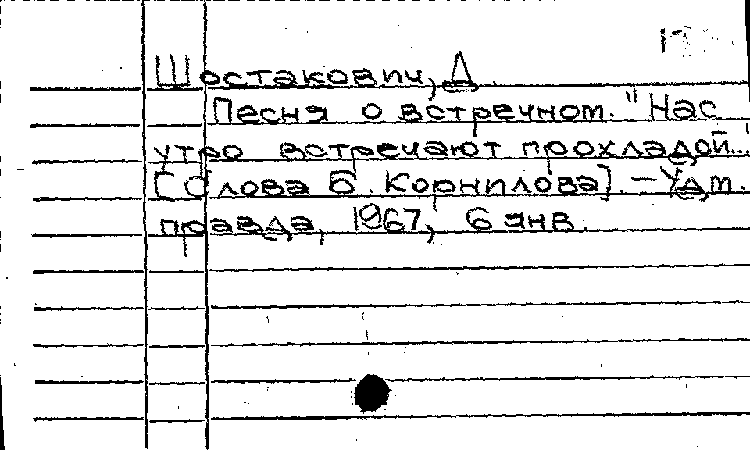 Шостакович, Д.
Песня о встречном. "Нас
утро встречает прохладой..."
[Слова Б. Корнилова]. - Удм.
правда, 1967, 6 янв.